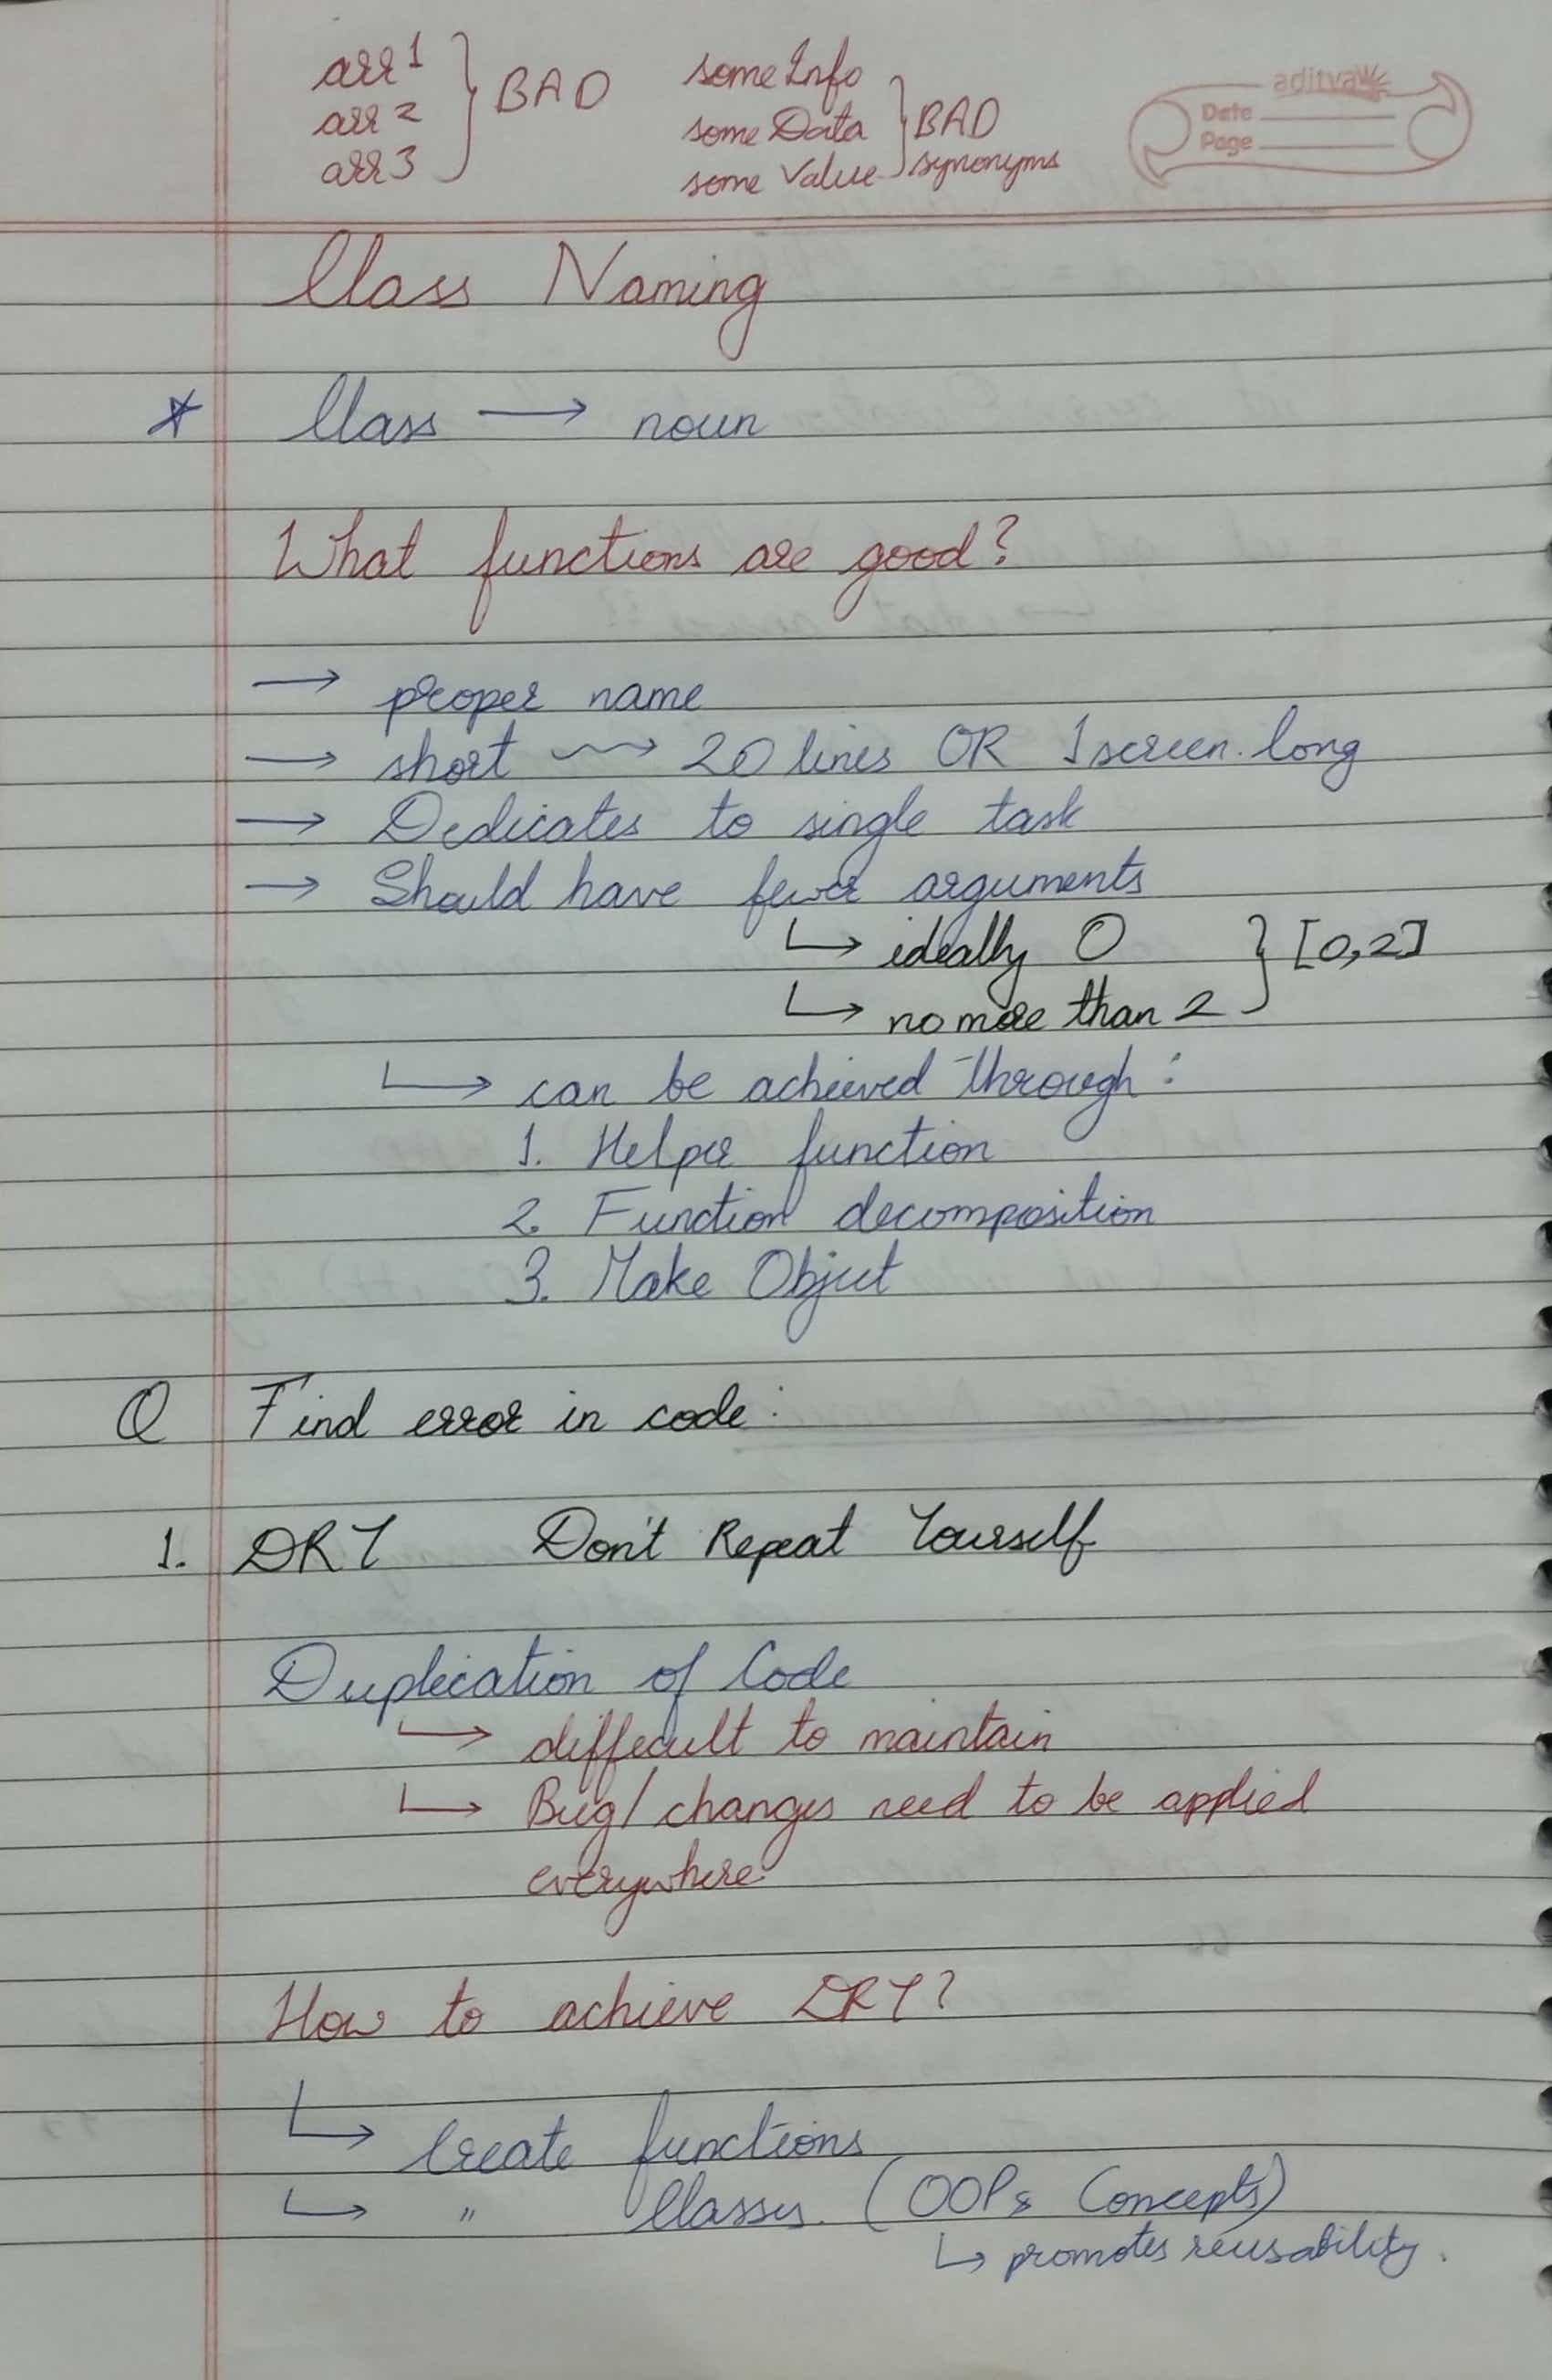 arr 1 } BAD
arr 2
arr 3
some Info } BAD
some Data synonyms
some Value
aditya
Date
Page
Class Naming
* Class → noun
What functions are good?
→ proper name
→ short ⇝ 20 lines OR 1 screen. long
→ Dedicates to single task
→ Should have fewer arguments
↳ ideally 0 } [0,2]
↳ no more than 2
↳ can be achieved through :
1. Helper function
2. Function decomposition
3. Make Object
Q Find error in code :
1. DRY Don't Repeat Yourself
Duplication of Code
↳ difficult to maintain
↳ Bug/changes need to be applied
everywhere.
How to achieve DRY?
↳ Create functions
↳ " Classes. (OOPs Concepts)
↳ promotes reusability.